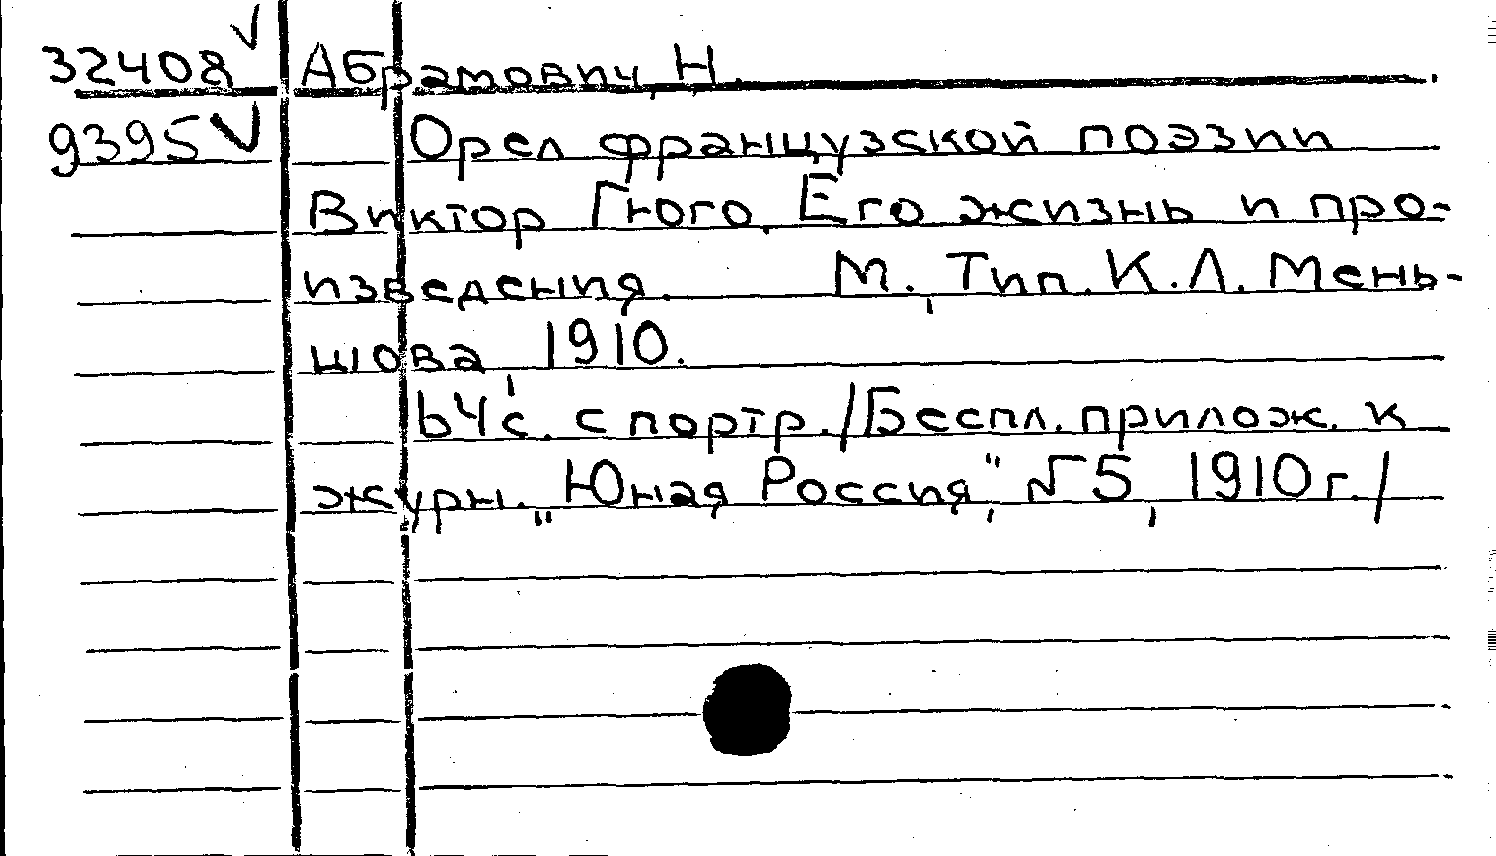 32408 √ Абрамович, Н.
9395 √ Орел французской поэзии
Виктор Гюго. Его жизнь и про-
изведения. М., Тип. К.Л. Мень-
шова, 1910.
64 с. с портр. /Беспл. прилож. к
журн. „Юная Россия", №5, 1910г./